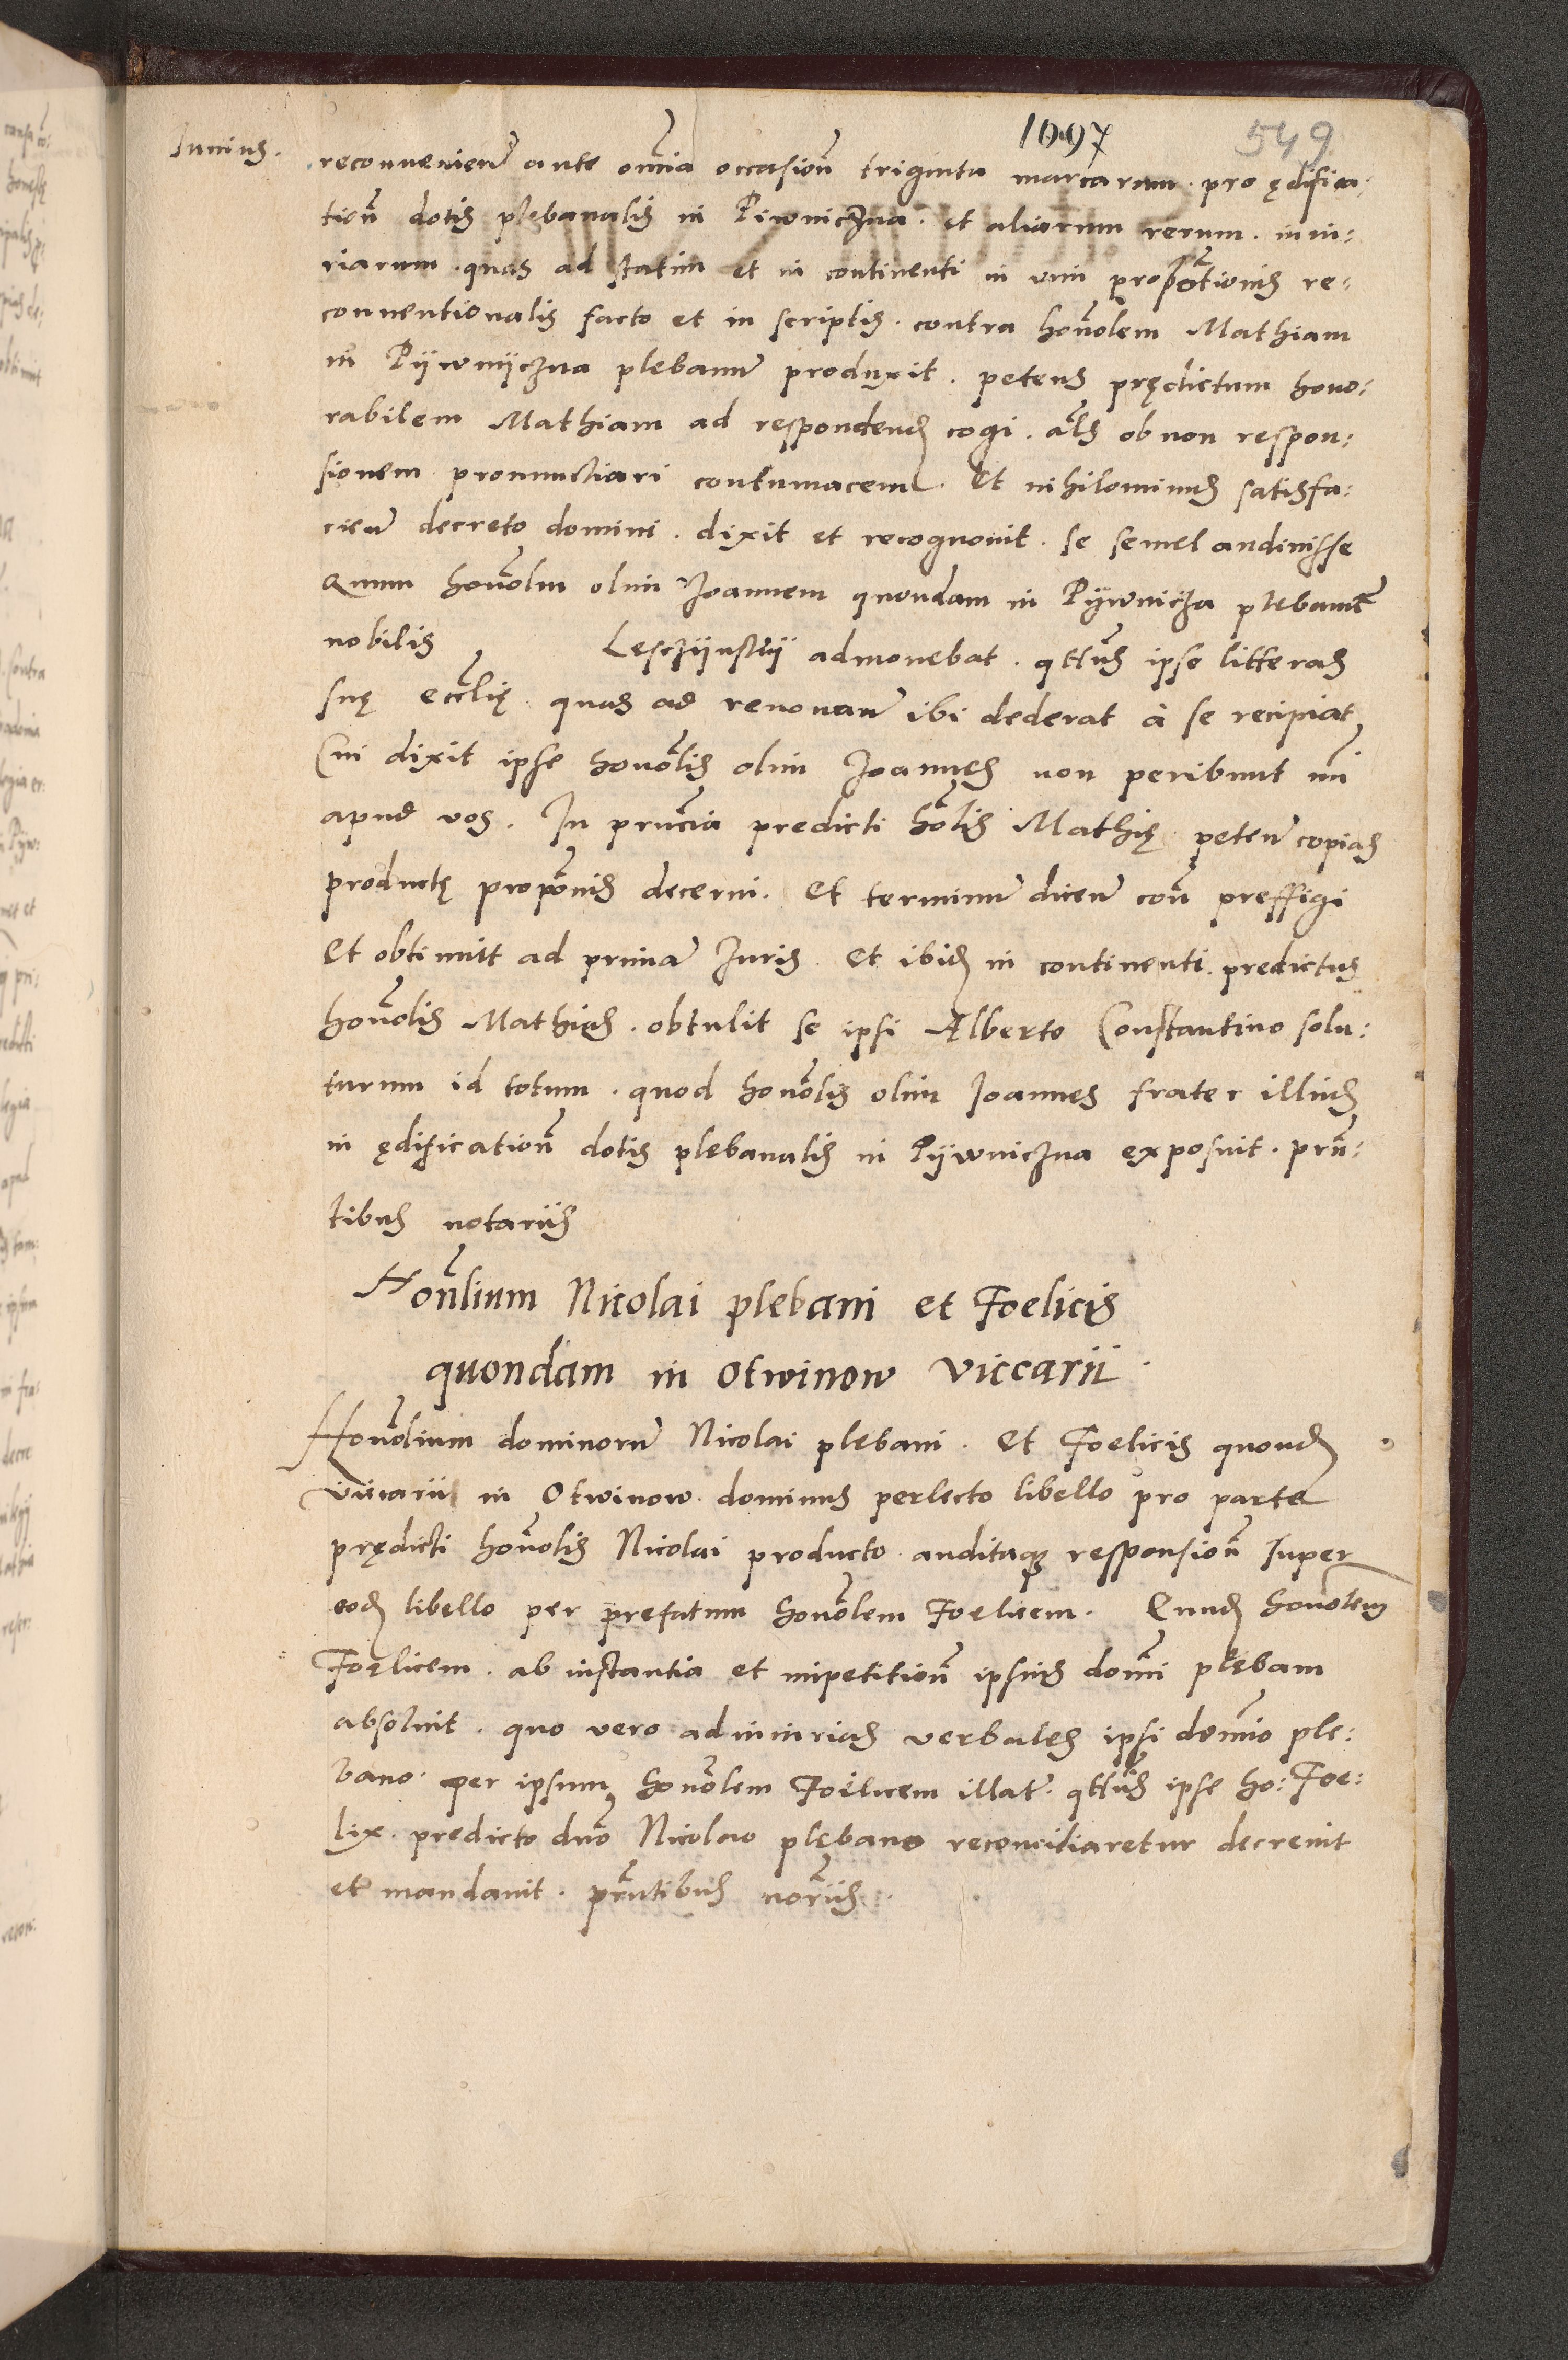 1097
549
Junius.
reconvenien̄ ante om̄ia occasion̄ triginta marcarum. pro ędifica:
tion̄ dotis plebanalis in Piwniczna. et aliarum rerum. iniu:
riarum. quas ad statim et in continenti in vim propo̅tionis re:
conventionalis facto et in scriptis. contra hon̄olem Mathiam
in Pÿwnÿczna plebanū produxit. petens prędictum hono:
rabilem Mathiam ad respondend̄ cogi. al̄s ob non respon:
sionem pronunctiari contumacem. Et nihilominus satisfa:
cien̄ decreto domini. dixit et recognovit. se semel audivisse
Quum hon̄olm olim Joannem quondam in Pÿwnicza plebanū
nobilis Lesczÿnskÿ admonebat. q̄tt̄us ipse litteras
suę eccl̄ię. quas ad renovan̄ ibi dederat à se recipiat,
Cui dixit ipse hon̄olis olim Joannes non peribunt m̄i
apud vos. In prn̄cia predicti hōlis Mathię peten̄ copias
productę propōnis decerni. Et terminū dicen̄ con̄ preffigi
Et obtinuit ad primā Juris. Et ibid̄ in continenti. predictus
hon̄olis Mathias. obtulit se ipsi Alberto Constantino solu:
turum id totum. quod hon̄olis olim Joannes frater illius
in ędification̄ dotis plebanalis in Pÿwniczna exposuit. prn̄:
tibus notariis
Hon̄lium Nicolai plebani et Foelicis
quondam in Otwinow viccarii.
Hon̄olium dominorū Nicolai plebani. Et Foelicis quond̄
vicarii in Otwinow. dominus perlecto libello pro parte
prędicti hon̄olis Nicolai producto. auditaq; responsion̄ super
eod̄ libello per prefatum hon̄olem Foelicem. Eund̄ honōlem
Foelicem. ab instantia et impetition̄ ipsius dom̄i plebani
absolvit. quo vero ad iniurias verbales ipsi dom̄o ple:
bano. per ipsum hon̄olem Foelicem illat̄. q̄tt̄us ipse ho: Foe:
lix. predicto dn̄o Nicolao plebano reconciliaretur decrevit
et mandavit. prn̄tibus nor̄iis.